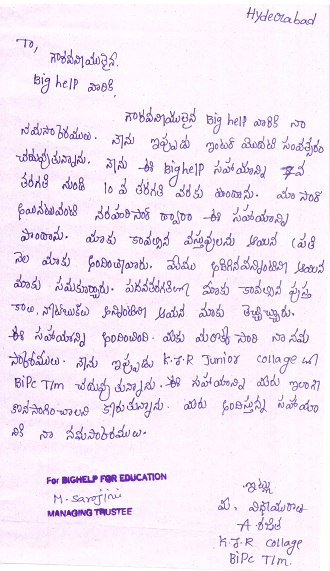 Hyderabad
To,
గౌరవనీయులైన
Big help వారికి,
గౌరవనీయులైన Big help వారికి నా
నమస్కారములు. నేను ఇప్పుడు ఇంటర్ మొదటి సంవత్సరం
చదువుతున్నాను. నేను ఈ Bighelp సహాయాన్ని 7వ
తరగతి నుండి 10వ తరగతి వరకు పొందాను. మా సార్
అయినటువంటి నరహరిసార్ ద్వారా ఈ సహాయాన్ని
పొందాను. మాకు కావల్సిన వస్తువులను ఆయన ప్రతి
నెల మాకు అందించేవారు. మేము అడిగినవన్నింటిని ఆయన
మాకు సమకూర్చారు. పదవతరగతిలో మాకు కావల్సిన పుస్త
కాలు, నోటుబుక్ లు అన్నింటిని ఆయన మాకు తెచ్చిచ్చారు.
ఈ సహాయాన్ని అందించింది. మీకు మరొక్క సారి నా నమ
స్కారములు. నేను ఇప్పుడు K.J.R Junior collage లో
Bipc T/m చదువుతున్నాను. ఈ సహాయాన్ని మీరు ఇలాగే
కొనసాగించాలని కోరుతున్నాను. మీరు అందిస్తున్న సహాయా
నికి నా నమస్కారములు.
For BIGHELP FOR EDUCATION
M. Sarojini
MANAGING TRUSTEE
ఇట్లు
A.
K.J.R collage
Bipc T/m.